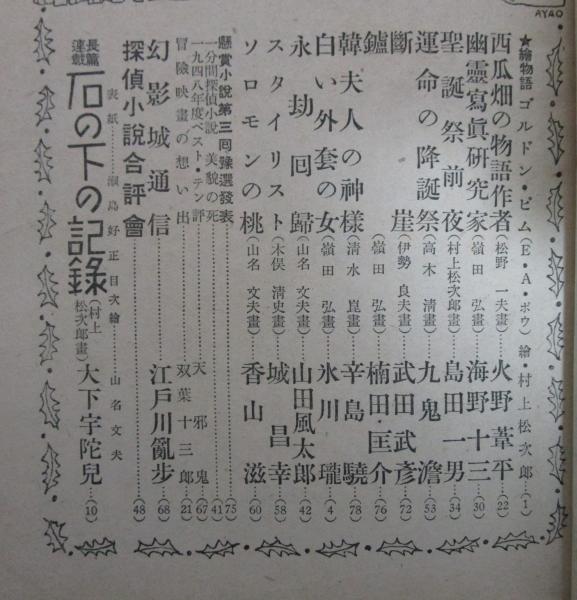 AYAO
★繪物語 ゴルドン・ピム（E・A・ポウ）繪・村上松次郎…(1)
西瓜畑の物語作者（松野一夫畫）火野葦平…(22)
幽靈寫眞研究家（嶺田弘畫）海野十三…(30)
聖誕祭前夜（村上松次郎畫）島田一男…(34)
運命の降誕祭（高木清畫）九鬼澹…(53)
斷崖（伊勢良夫畫）武田武彥…(72)
鑪（嶺田弘畫）楠田匡介…(76)
韓夫人の神樣（清水崑畫）辛島驍…(78)
白い外套の女（嶺田弘畫）氷川瓏…(4)
永劫回歸（山名文夫畫）山田風太郎…(42)
スタイリスト（木俣清史畫）城昌幸…(58)
ソロモンの桃（山名文夫畫）香山滋…(60)
懸賞小說第三回豫選發表…(75)
一分間探偵小說 美貌の死…(41)
一九四八年度ベスト・テン評 天邪鬼…(67)
冒險映畫の想い出 双葉十三郎…(21)
幻影城通信 江戶川亂步…(68)
探偵小說合評會…(48)
表紙…瀨島好正 目次繪…山名文夫
長篇連載 石の下の記錄（村上松次郎畫）大下宇陀兒…(10)